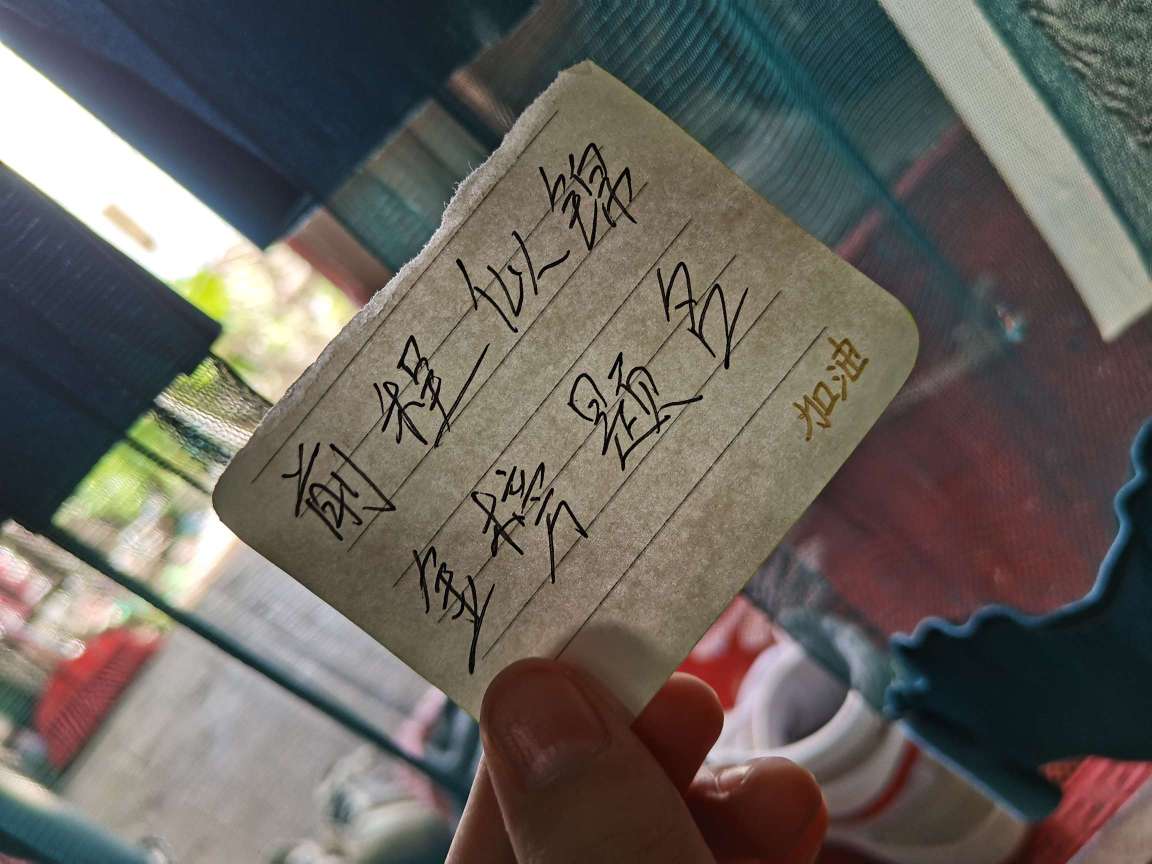 前程似锦
金榜题名
加油